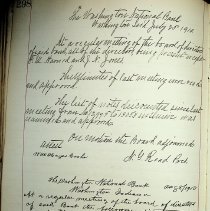 298
The Washington National Bank
Washington Ind. July 25th 1910
At a regular meeting of the board of directors
of said bank all of the directors being present except
E. W. and N. Jones
The minutes of last meeting were read
and approved.
The list of notes discounted since last
meeting from to inclusive was
examined and approved.
On motion the Board adjourned
attest N. G. Read Pres.
The Washington National Bank
Washington Indiana Aug 8 1910
At a regular meeting of the board of directors
of said Bank the following